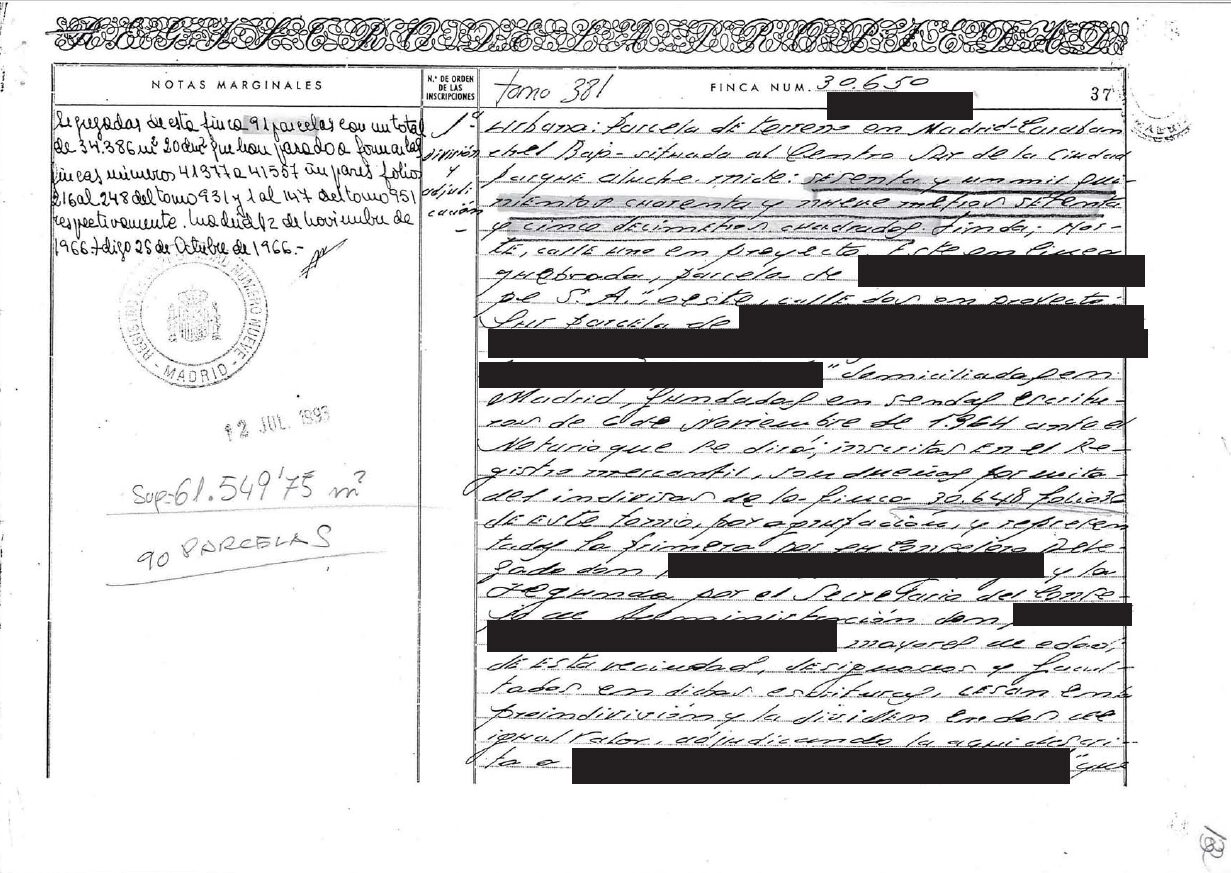 REGISTRO DE LA PROPIEDAD
NOTAS MARGINALES
N.º DE ORDEN
DE LAS
INSCRIPCIONES
tomo 381
FINCA NUM. 30.650
37
Segregadas de esta finca 91 parcelas con un total
de 34.386 m² 20 dm² que han pasado a formar las
fincas números 41377 a 41557 impares folios
216 al 248 del tomo 931 y 1 al 147 del tomo 951
respectivamente. Madrid 2 de noviembre de
1966. digo 25 de Octubre de 1966.-
REGISTRO DE LA PROPIEDAD NUMERO NUEVE - MADRID -
12 JUL. 1993
Sup=61.549'75 m²
90 PARCELAS
1ª
división
y
adjudi
cación
Urbana: Parcela de terreno en Madrid-Caraban
chel Bajo-situada al Centro Sur de la Ciudad
Parque Aluche. mide: sesenta y un mil qui-
nientos cuarenta y nueve metros setenta
y cinco decimetros cuadrados. Linda; Nor-
te, calle uno en proyecto. Este en linea
quebrada, parcela de
pe S. A." oeste, calle dos en proyecto.
Sur parcela de
" domiciliadas en
Madrid, fundadas en sendas escritu-
ras de 6 de Noviembre de 1.964 ante el
Notario que se dirá; inscritas en el Re
gistro mercantil, son dueñas por mita-
des indivisas de la finca 30.648 folio 30
de este tomo, por aportación, y represen
tadas la primera por su Consejero Dele-
gado don
y la
segunda por el Secretario del Conse-
jo de Administración don
mayores de edad,
de esta vecindad, designados y facul-
tados en dichas escrituras, cesan en la
proindivisión y la dividen en dos de
igual valor, adjudicando la aqui descri-
ta a
"que